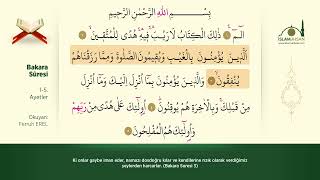 بِسْمِ اللّٰهِ الرَّحْمٰنِ الرَّحِيمِ
الٓمٓ ۞ ذٰلِكَ الْكِتَابُ لَا رَيْبَ فِيهِ هُدًى لِلْمُتَّقِينَ ۞
اَلَّذِينَ يُؤْمِنُونَ بِالْغَيْبِ وَيُقِيمُونَ الصَّلٰوةَ وَمِمَّا رَزَقْنَاهُمْ
يُنْفِقُونَ ۞ وَالَّذِينَ يُؤْمِنُونَ بِمَا اُنْزِلَ اِلَيْكَ وَمَا اُنْزِلَ
مِنْ قَبْلِكَ وَبِالْاٰخِرَةِ هُمْ يُوقِنُونَ ۞ اُولٰئِكَ عَلٰى هُدًى مِنْ رَبِّهِمْ
وَاُولٰئِكَ هُمُ الْمُفْلِحُونَ ۞
Bakara
Sûresi
1-5.
Ayetler
Okuyan:
Ferruh EREL
İSLAM&İHSAN
Ki onlar gaybe iman eder, namazı dosdoğru kılar ve kendilerine rızık olarak verdiğimiz
şeylerden harcarlar. (Bakara Suresi 3)